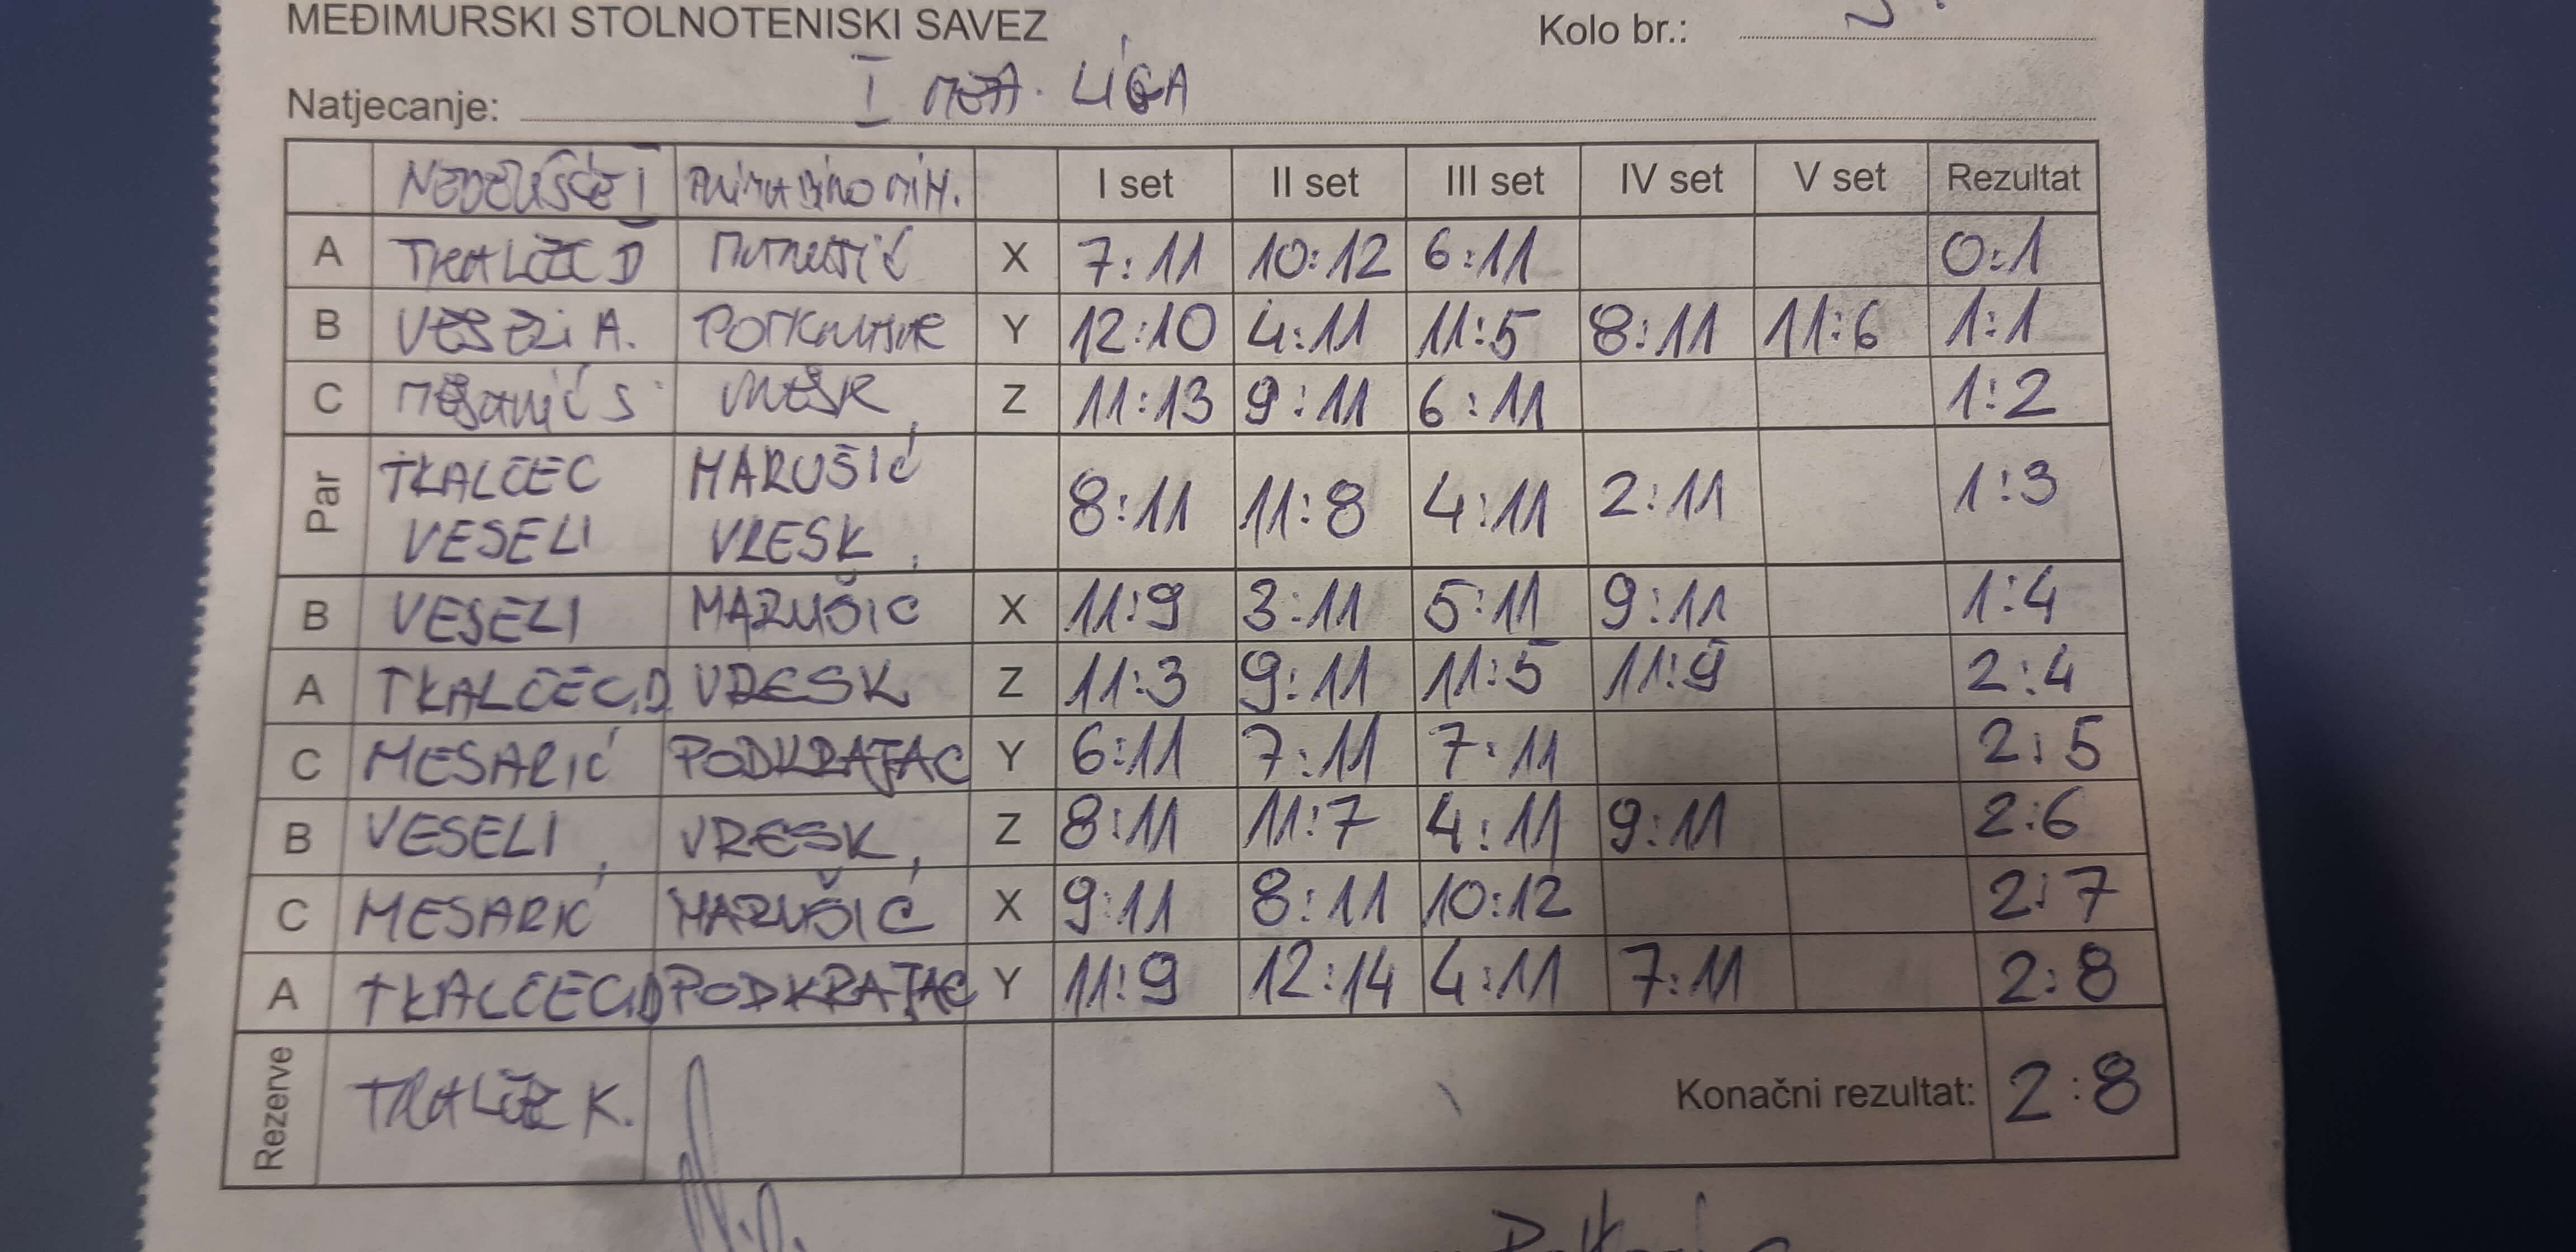 MEĐIMURSKI STOLNOTENISKI SAVEZ Kolo br.:
Natjecanje: I LIGA
NEDELIŠĆE I I set II set III set IV set V set Rezultat
A TKALČEC D X 7:11 10:12 6:11 0:1
B VESELI A. Y 12:10 4:11 11:5 8:11 11:6 1:1
C MESARIĆ S VRESK Z 11:13 9:11 6:11 1:2
Par TKALČEC MARUŠIĆ 8:11 11:8 4:11 2:11 1:3
VESELI VRESK
B VESELI MARUŠIC X 11:9 3:11 5:11 9:11 1:4
A TKALČEC.D. VRESK Z 11:3 9:11 11:5 11:9 2:4
C MESARIĆ PODKRAJAC Y 6:11 7:11 7:11 2:5
B VESELI VRESK Z 8:11 11:7 4:11 9:11 2:6
C MESARIĆ MARUŠIĆ X 9:11 8:11 10:12 2:7
A TKALČEC.D PODKRAJAC Y 11:9 12:14 4:11 7:11 2:8
Rezerve TKALČEC K. Konačni rezultat: 2:8